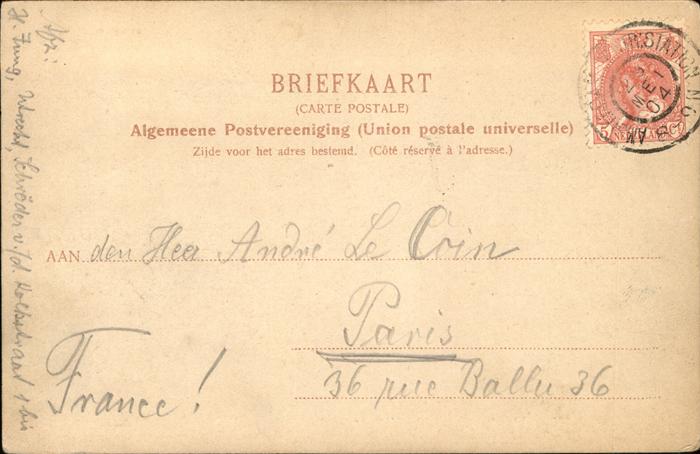 BRIEFKAART
(CARTE POSTALE)
Algemeene Postvereeniging (Union postale universelle)
Zijde voor het adres bestemd. (Côté réservé à l'adresse.)
AAN den Heer André Le Coin
Paris
36 rue Ballu 36
France!
Afz:
H. Jung, Utrecht, Schröder v./d. Kolkstraat 1 bis
5 NEDERLAND Ct
STATION
MEI
04